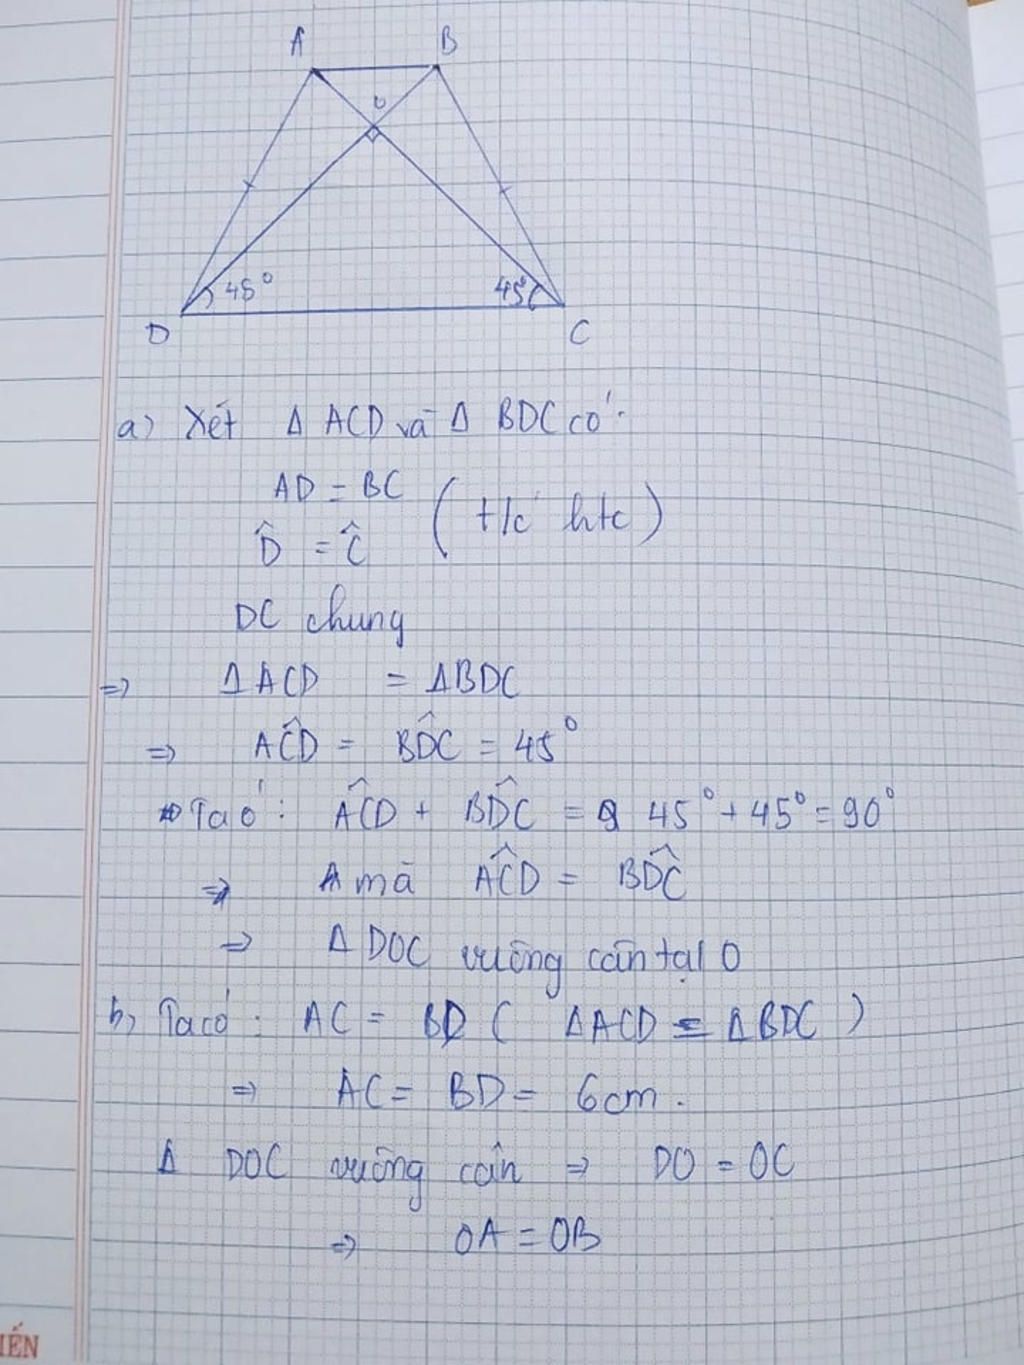 A
B
O
45°
45°
D
C
a) Xét Δ ACD và Δ BDC có:
AD = BC
(t/c htc)
D̂ = Ĉ
DC chung
=> Δ ACD = Δ BDC
=> AĈD = BD̂C = 45°
Ta có: AĈD + BD̂C = 45° + 45° = 90°
=> mà AĈD = BDĈ
=> Δ DOC vuông cân tại O
b, Ta có: AC = BD ( Δ ACD = Δ BDC )
=> AC = BD = 6cm.
Δ DOC vuông cân => DO = OC
=> OA = OB
IẾN